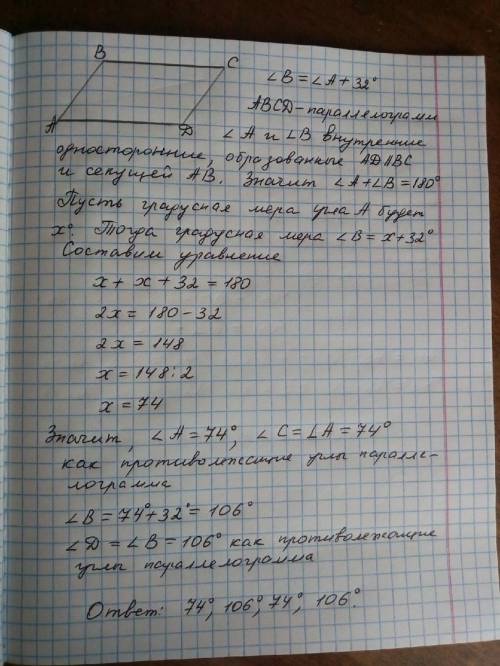 B
C
A
D
∠B = ∠A + 32°
ABCD - параллелограмм
∠A и ∠B внутренние
односторонние, образованные AD ∥ BC
и секущей AB. Значит ∠A + ∠B = 180°
Пусть градусная мера угла A будет
x°. Тогда градусная мера ∠B = x + 32°
Составим уравнение
x + x + 32 = 180
2x = 180 - 32
2x = 148
x = 148 : 2
x = 74
Значит, ∠A = 74°, ∠C = ∠A = 74°
как противолежащие углы паралле-
лограмма
∠B = 74° + 32° = 106°
∠D = ∠B = 106° как противолежащие
углы параллелограмма
Ответ: 74°, 106°, 74°, 106°.